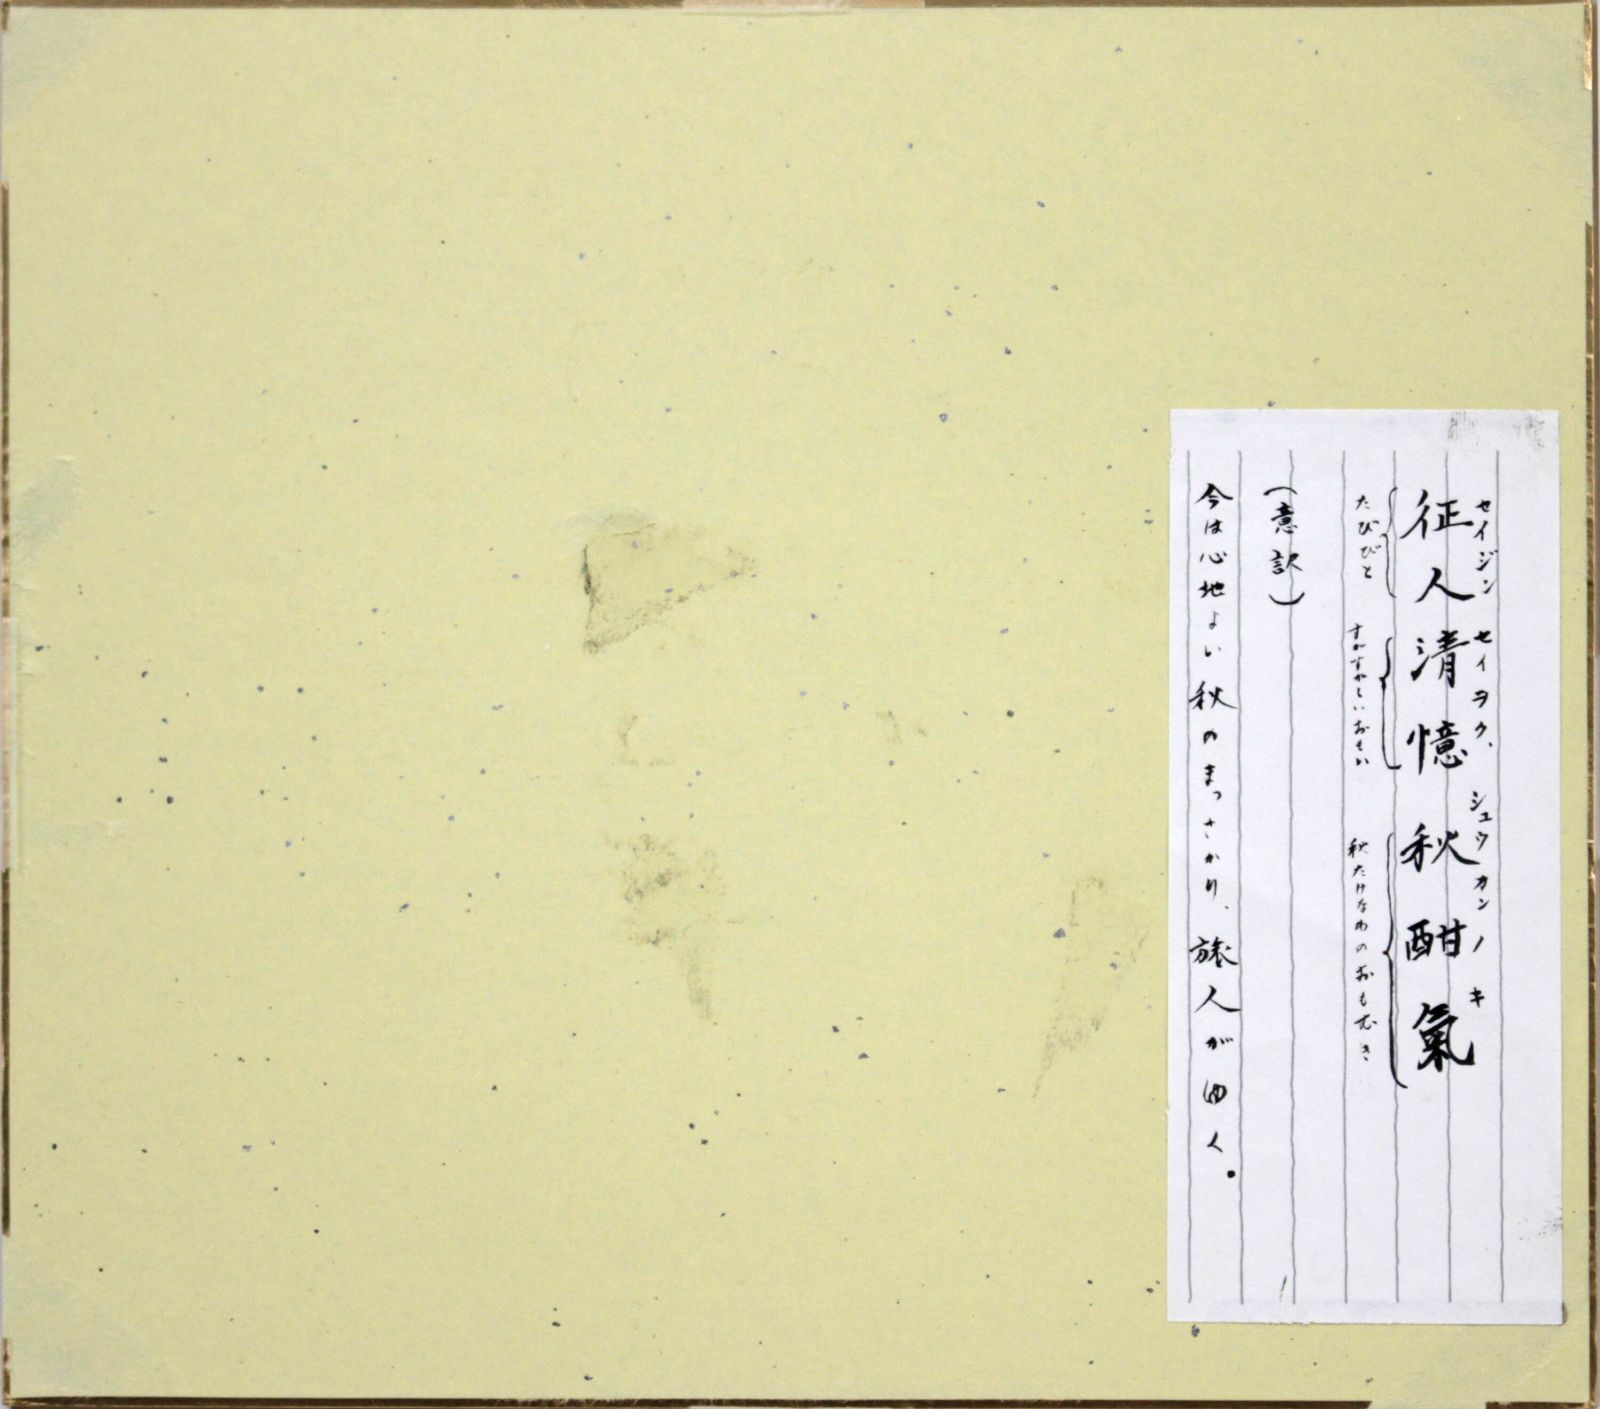 セイジン セイヲク、シュウカンノキ
征人清憶秋酣氣
たびびと すがすがしいおもい 秋たけなわのおもむき
(意訳)
今は心地よい秋のまっさかり、旅人がゆく。